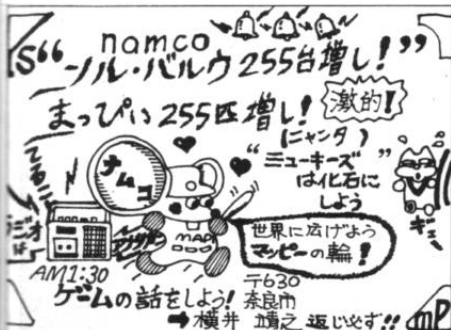 namco
“ソル・バルウ255台増し!”
まっぴい255匹増し!
激的!
(ニャンタ)
“ミューキーズ”
は化石に
しよう
ナムコ
ラジオ
は
MAP
世界に広げよう
マッピーの輪!
ギュー
AM1:30
〒630
ゲームの話をしよう!
奈良市
➡横井 靖之 返じ必ず!!
mP